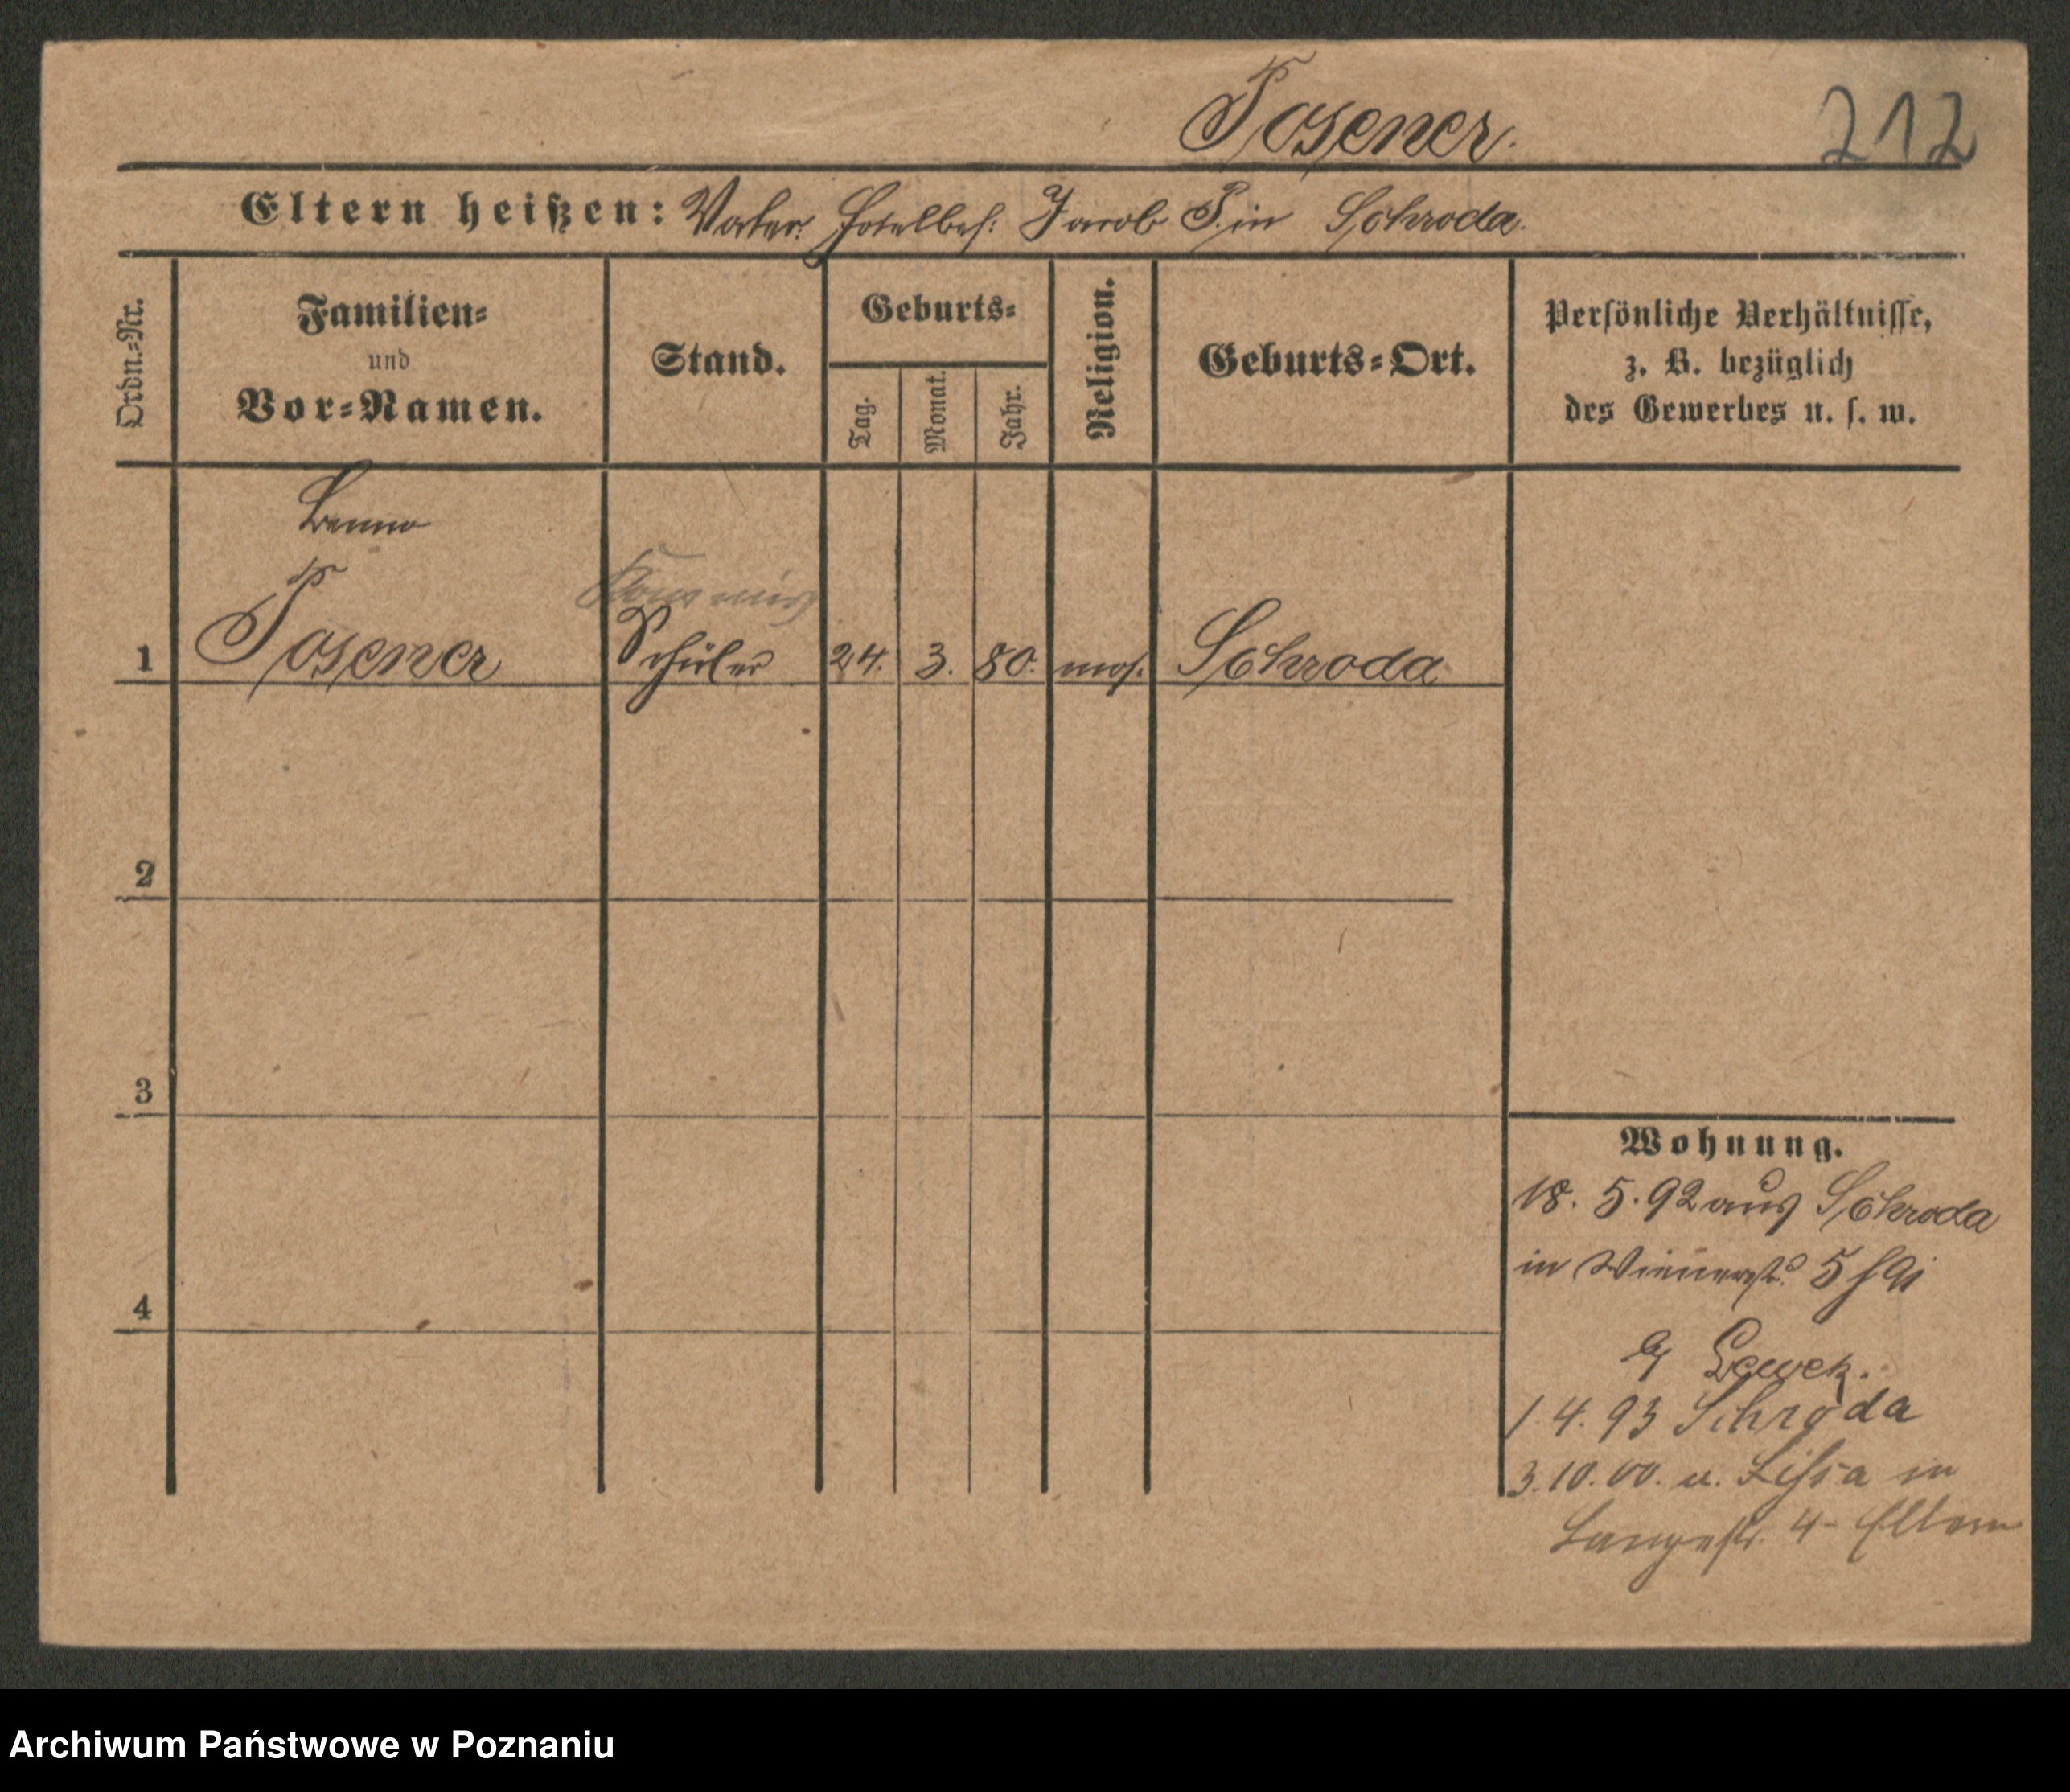 Posener.
212
Eltern heißen: Vater: Hotelbes: Jacob P. in Schroda.
Ordn.=Nr.
Familien=
und
Vor=Namen.
Stand.
Geburts=
Tag.
Monat.
Jahr.
Religion.
Geburts=Ort.
Persönliche Verhältnisse,
z. B. bezüglich
des Gewerbes u. s. w.
Benno
1 Posener Schüler 24. 3. 80. mos. Schroda
2
3
4
Wohnung.
18. 5. 92 aus Schroda
in Wienerstr. 5
Lewek.
1. 4. 93 Schroda
3. 10. 00. a. Lissa in
Langestr. 4 - Eltern
Archiwum Państwowe w Poznaniu